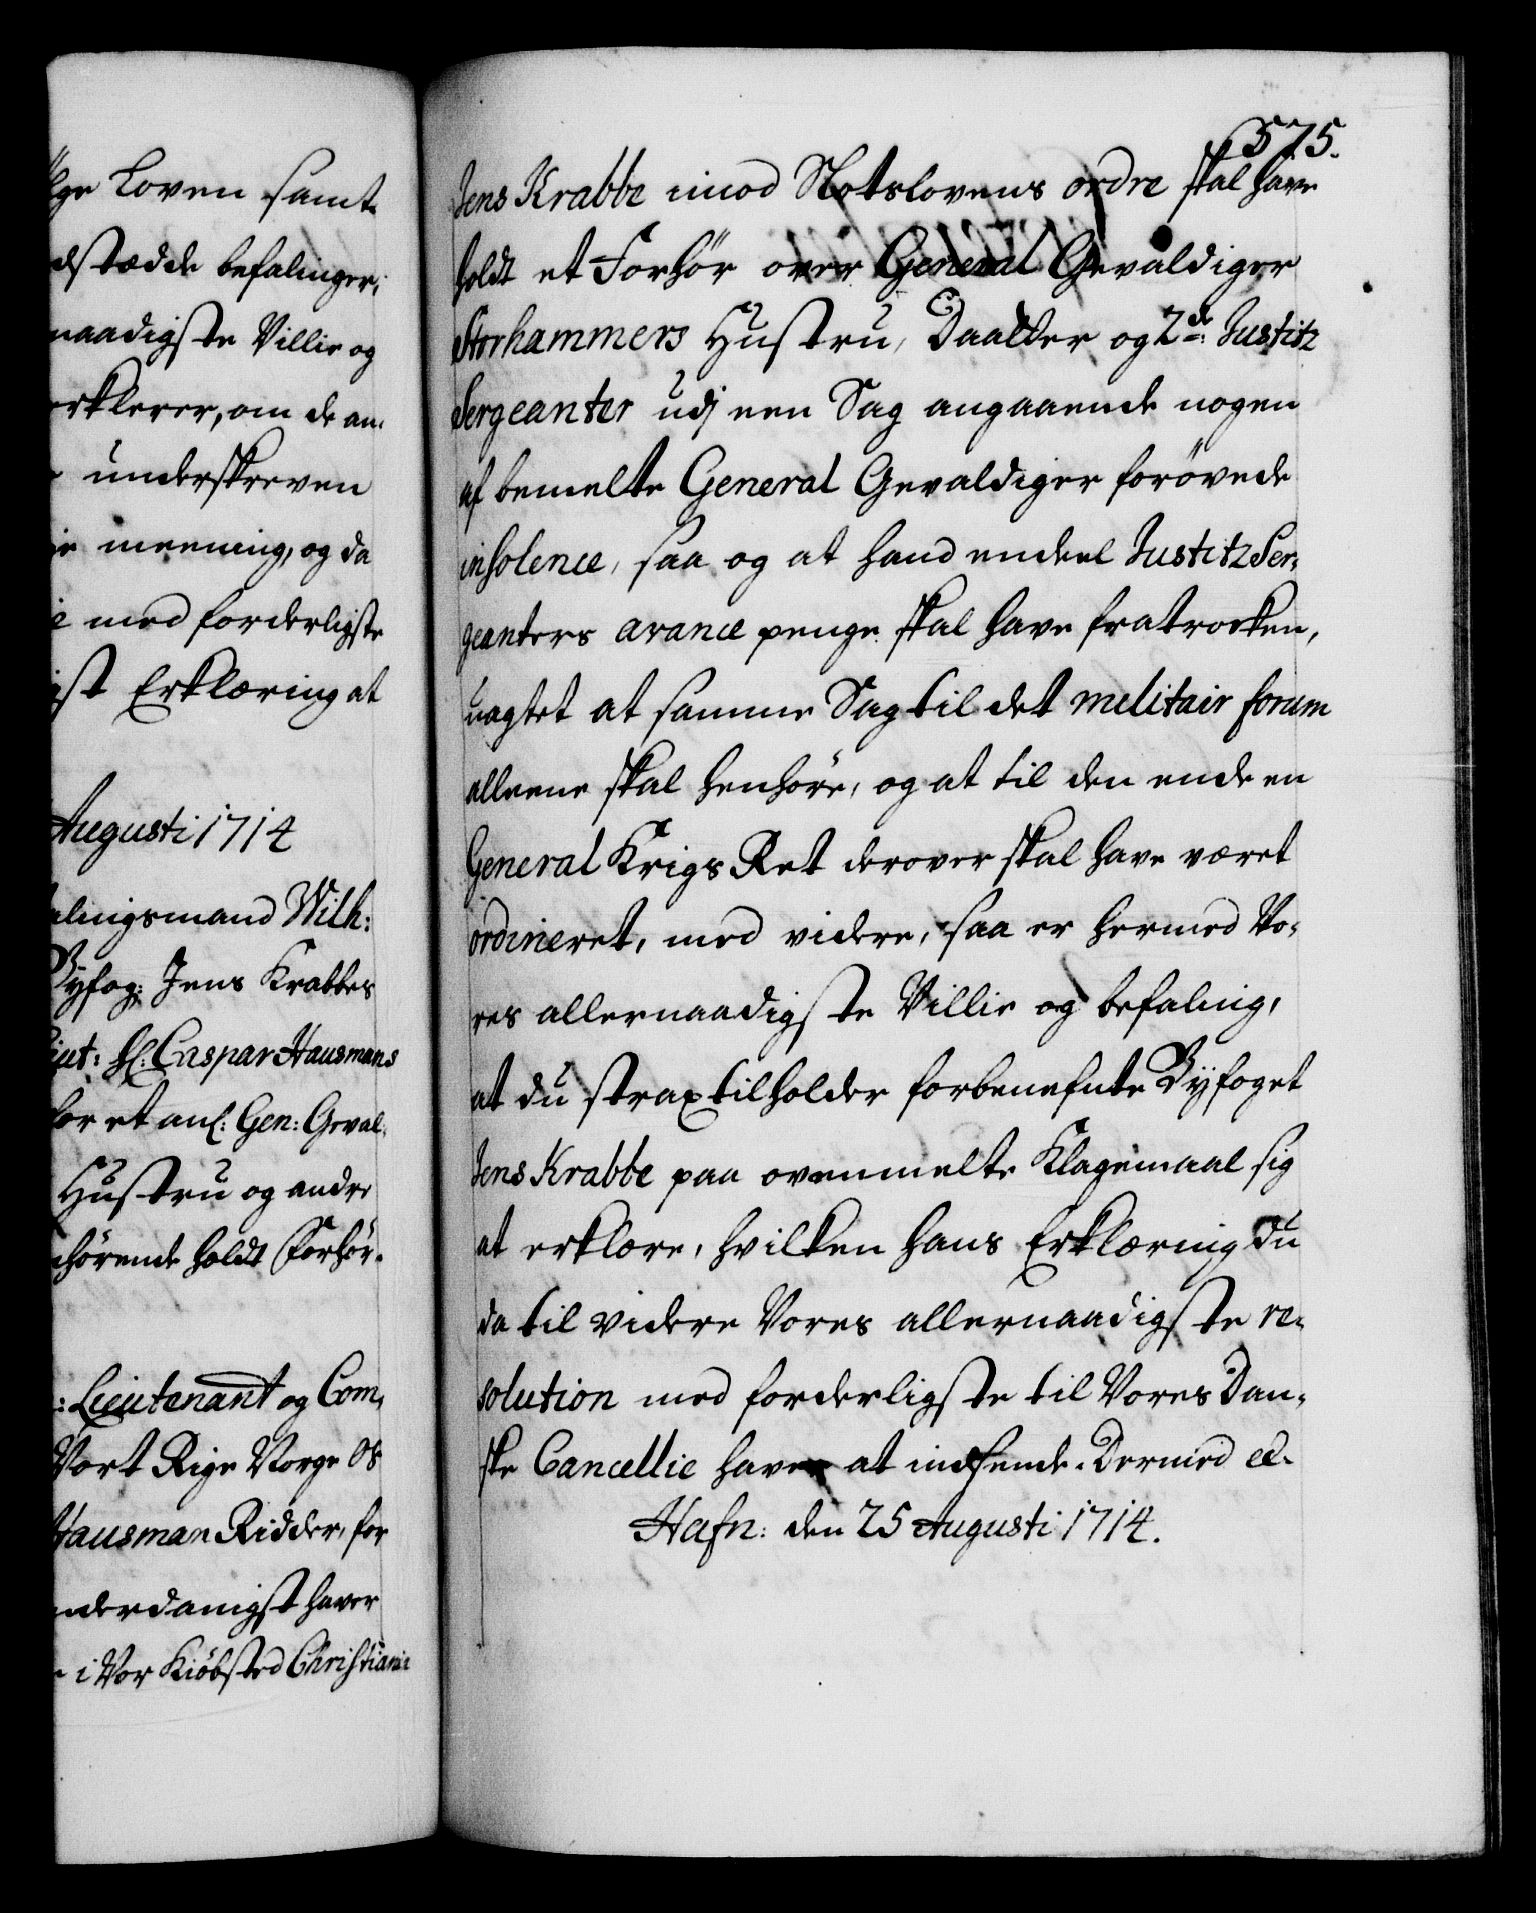 lge Loven samt
dstædde befalinger,
naadigste Villie og
erklerer, om de an¬
underskreven
meening, og da
med forderligste
st Erklæring at
Augusti 1714
alingsmand Wilh:
Byfog: Jens Krabbes
Lieut: H: Caspar Hausmans
for et anl: Gen: Geval¬
Hustru og andre
hørende holdt Forhør.
: Lieutenant og Com¬
Vort Rige Norge Os
Hausman Ridder, for
underdanigst haver
i Vor Kiöbsted Christiania
575.
Jens Krabbe imod Slotslovens ordre skal have
holdt et Forhör over General Gevaldiger
Storhammers Hustru, Daatter og 2de Justitz
Sergeanter udj een Sag angaaende nogen
af bemelte General Gevaldiger forövede
insolence, saa og at hand endeel Justitz Ser¬
geanters avance penge skal have fratrocken,
uagtet at samme Sag til det melitair forum
alleene skal henhöre, og at til den ende en
General Krigs Ret derover skal have været
ordineret, med videre, saa er hermed Vo¬
res allernaadigste Villie og befaling,
at du strax tilholder forbenefnte Byfoget
Jens Krabbe paa ovenmelte Klagemaal sig
at erklære, hvilken hans Erklæring du
da til videre Vores allernaadigste re¬
solution med forderligste til Vores Dan¬
ske Cancellie haver at indsende. Dermed etc.
Hafn: den 25 Augusti 1714.